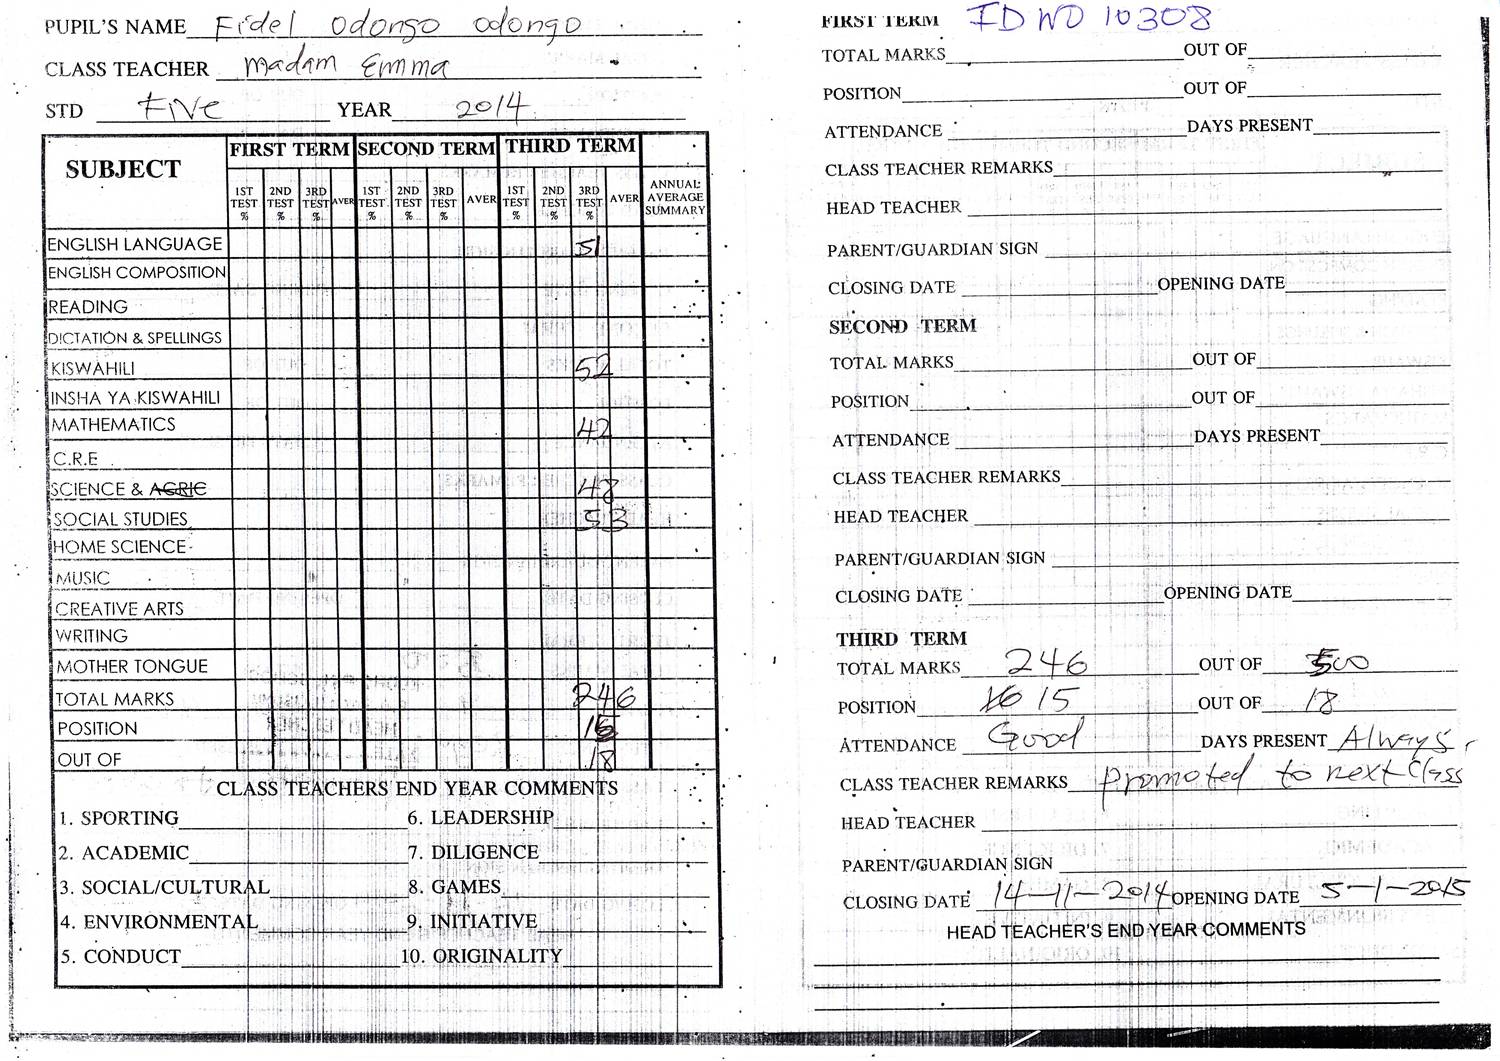 PUPIL'S NAME Fidel Odongo Odongo
CLASS TEACHER Madam Emma
STD Five YEAR 2014
SUBJECT FIRST TERM SECOND TERM THIRD TERM
1ST TEST % 2ND TEST % 3RD TEST % AVER 1ST TEST % 2ND TEST % 3RD TEST % AVER 1ST TEST % 2ND TEST % 3RD TEST % AVER ANNUAL AVERAGE SUMMARY
ENGLISH LANGUAGE 51
ENGLISH COMPOSITION
READING
DICTATION & SPELLINGS
KISWAHILI 52
INSHA YA KISWAHILI
MATHEMATICS 42
C.R.E
SCIENCE & AGRIC 48
SOCIAL STUDIES 53
HOME SCIENCE
MUSIC
CREATIVE ARTS
WRITING
MOTHER TONGUE
TOTAL MARKS 246
POSITION 15
OUT OF 18
CLASS TEACHERS END YEAR COMMENTS
1. SPORTING 6. LEADERSHIP
2. ACADEMIC 7. DILIGENCE
3. SOCIAL/CULTURAL 8. GAMES
4. ENVIRONMENTAL 9. INITIATIVE
5. CONDUCT 10. ORIGINALITY
FIRST TERM ID NO 10308
TOTAL MARKS OUT OF
POSITION OUT OF
ATTENDANCE DAYS PRESENT
CLASS TEACHER REMARKS
HEAD TEACHER
PARENT/GUARDIAN SIGN
CLOSING DATE OPENING DATE
SECOND TERM
TOTAL MARKS OUT OF
POSITION OUT OF
ATTENDANCE DAYS PRESENT
CLASS TEACHER REMARKS
HEAD TEACHER
PARENT/GUARDIAN SIGN
CLOSING DATE OPENING DATE
THIRD TERM
TOTAL MARKS 246 OUT OF 500
POSITION 16 15 OUT OF 18
ATTENDANCE Good DAYS PRESENT Always
CLASS TEACHER REMARKS promoted to next class
HEAD TEACHER
PARENT/GUARDIAN SIGN
CLOSING DATE 14-11-2014 OPENING DATE 5-1-2015
HEAD TEACHER'S END YEAR COMMENTS